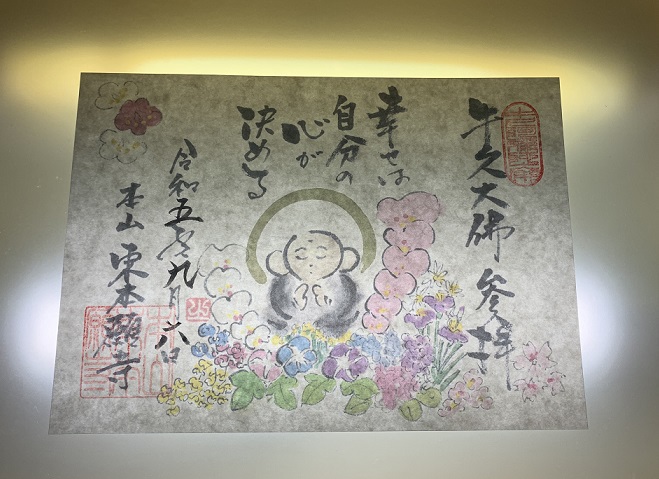 牛久大佛 参拝
幸せは
自分の
心が
決める
令和五年九月六日
本山 東本願寺